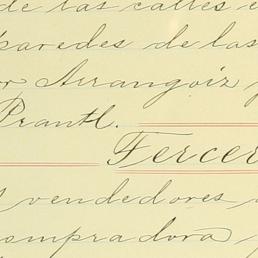 de las calles
paredes de las
or Arrangoiz y
Prantl.
Tercer
vendedores
compradora